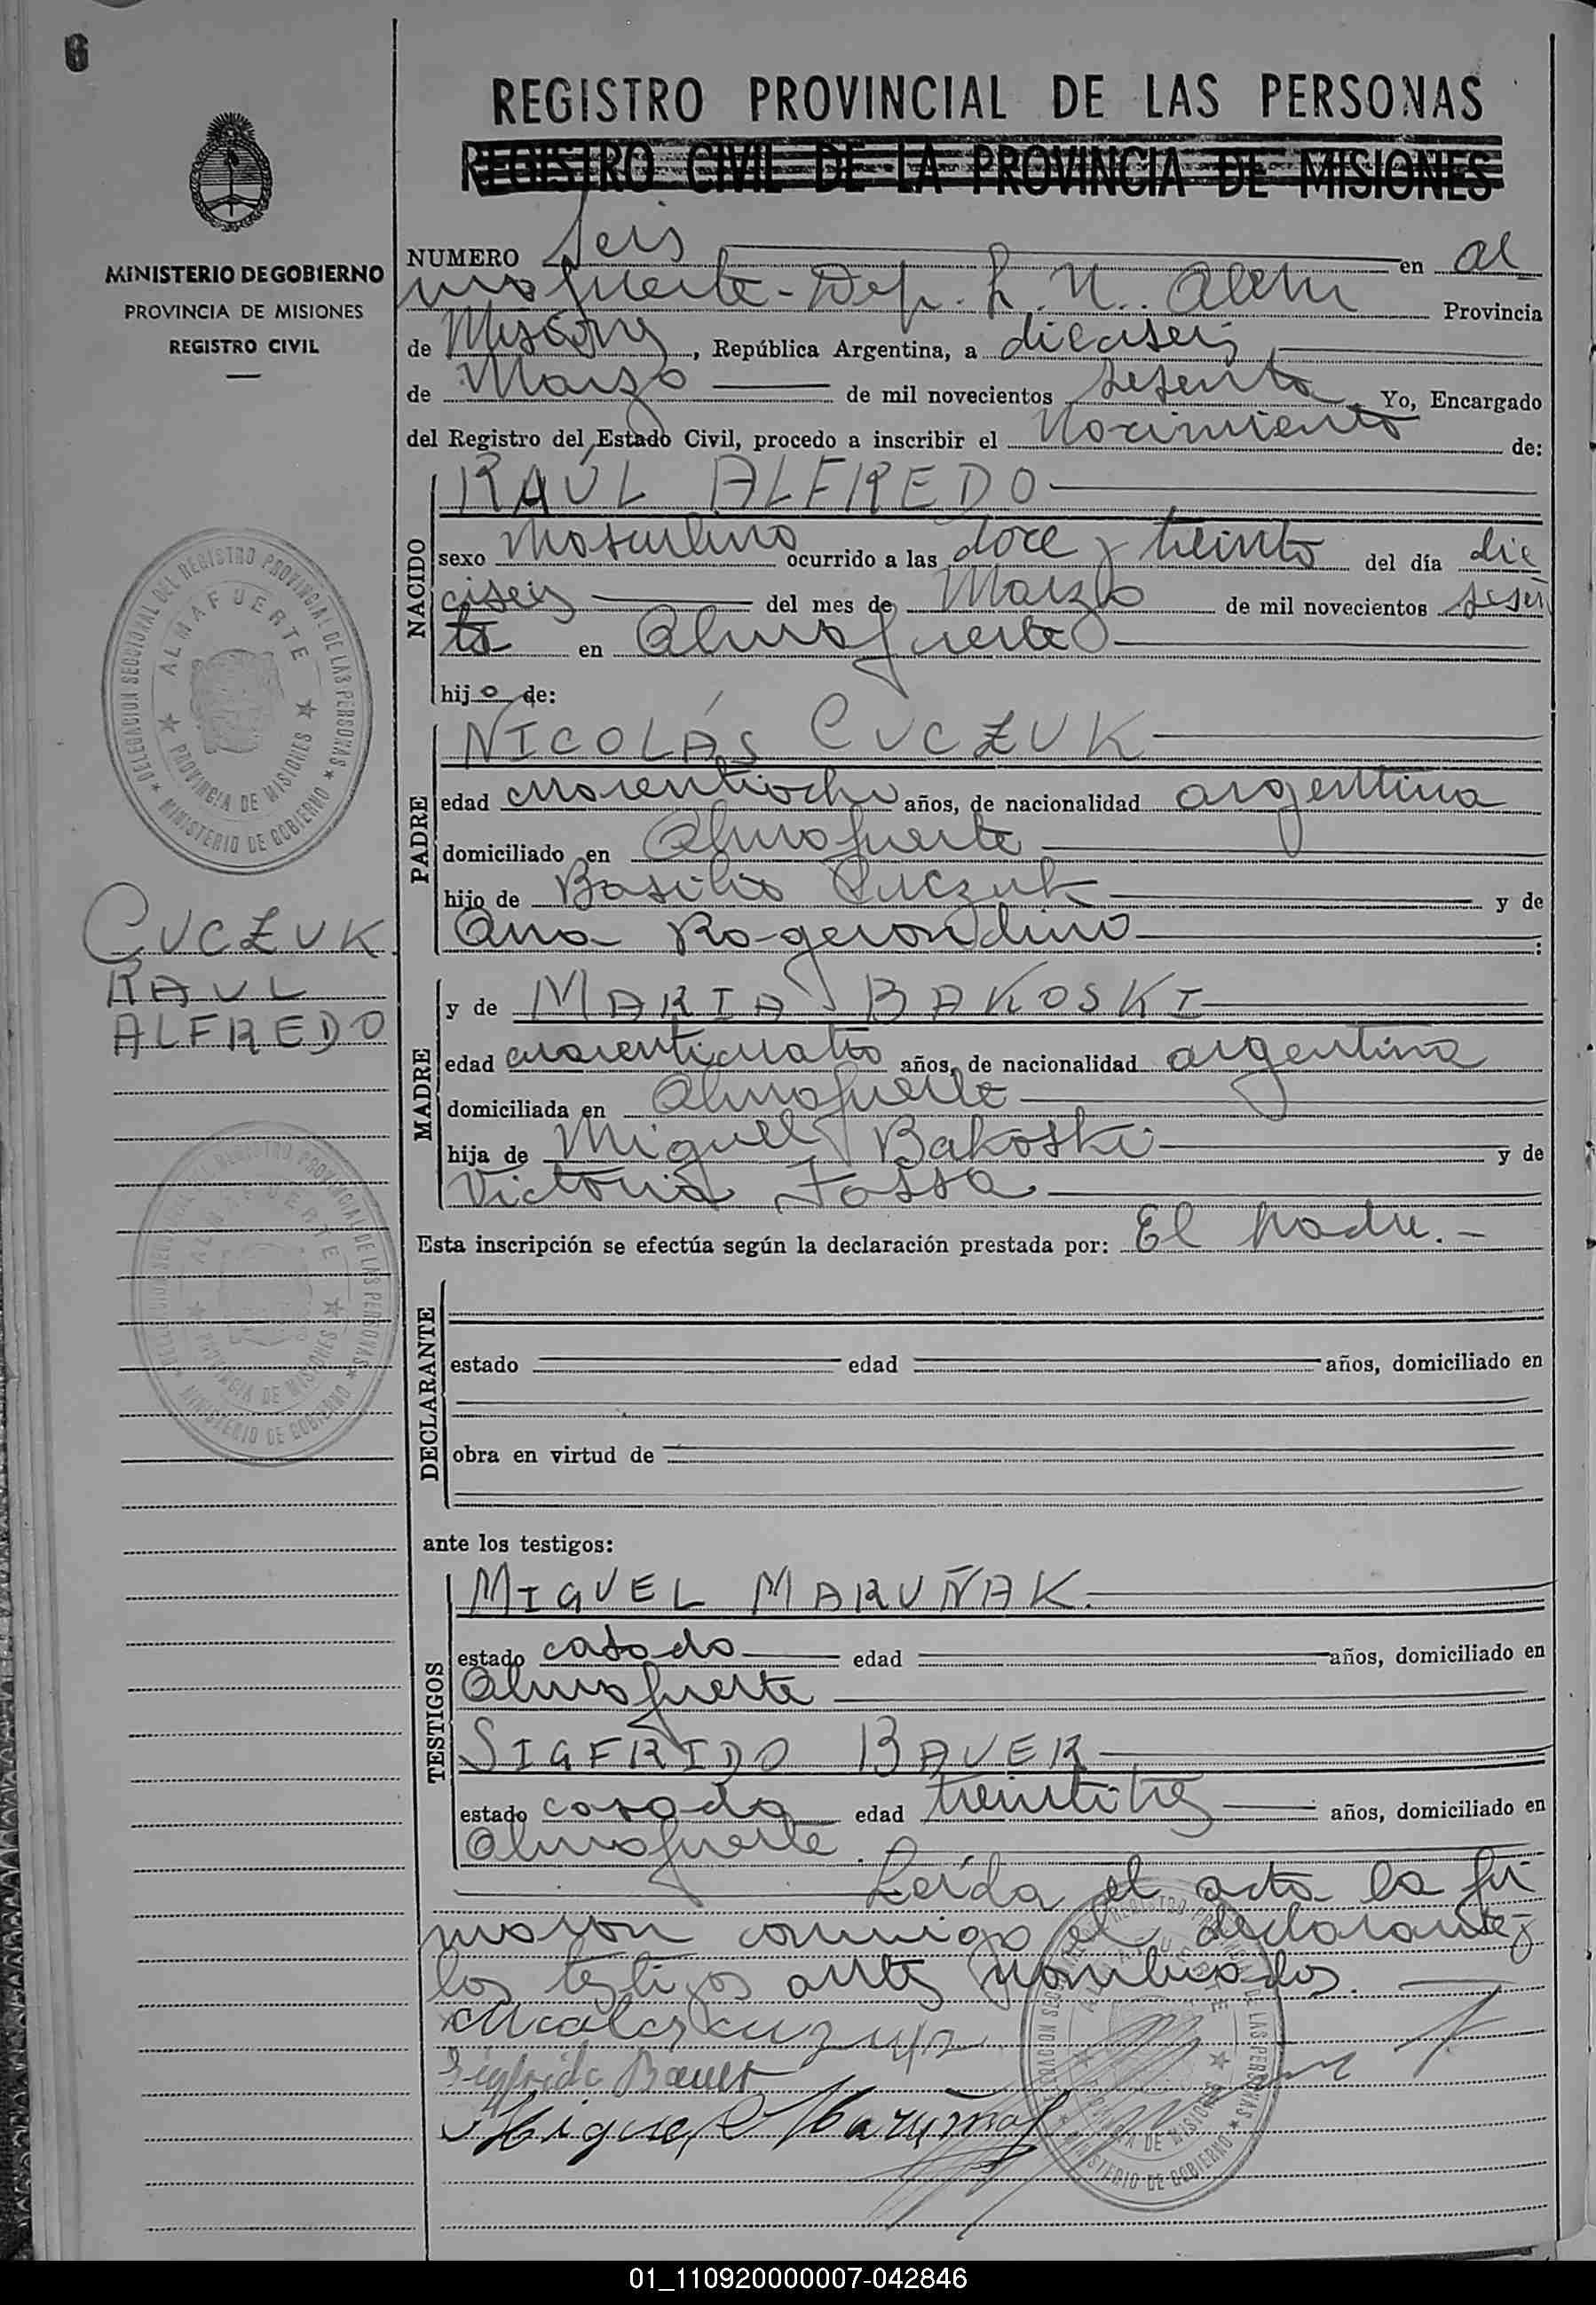 6
REGISTRO PROVINCIAL DE LAS PERSONAS
REGISTRO CIVIL DE LA PROVINCIA DE MISIONES
MINISTERIO DE GOBIERNO
PROVINCIA DE MISIONES
REGISTRO CIVIL
NUMERO Seis en Al
mafuerte - Dep. L. N. Alem Provincia
de Misiones, República Argentina, a dieciseis
de Marzo de mil novecientos sesenta Yo, Encargado
del Registro del Estado Civil, procedo a inscribir el Nacimiento de:
NACIDO
RAÚL ALFREDO
sexo Masculino ocurrido a las doce y treinta del día die
ciseis del mes de Marzo de mil novecientos sesen
ta en Almafuerte
hijo de:
PADRE
NICOLÁS CUCZUK
edad cuarentiocho años, de nacionalidad argentina
domiciliado en Almafuerte
hijo de Basilio Cuczuk y de
Ana Rogerondino
CUCZUK
RAUL
ALFREDO
MADRE
y de MARIA BAKOSKI
edad cuarenticuatro años, de nacionalidad argentina
domiciliada en Almafuerte
hija de Miguel Bakoski y de
Victoria Fossa
Esta inscripción se efectúa según la declaración prestada por: El padre.-
DECLARANTE
estado edad años, domiciliado en
obra en virtud de
ante los testigos:
TESTIGOS
MIGUEL MARUÑAK.
estado casado edad años, domiciliado en
Almafuerte
SIGFRIDO BAUER
estado casado edad treintitres años, domiciliado en
Almafuerte.
Leída el acta la fir
maron conmigo el declarante y
los testigos antes nombrados.
Sigfrido Bauer
Miguel Maruñak
DELEGACION SECCIONAL DEL REGISTRO PROVINCIAL DE LAS PERSONAS
ALMAFUERTE
PROVINCIA DE MISIONES
MINISTERIO DE GOBIERNO
01_110920000007-042846